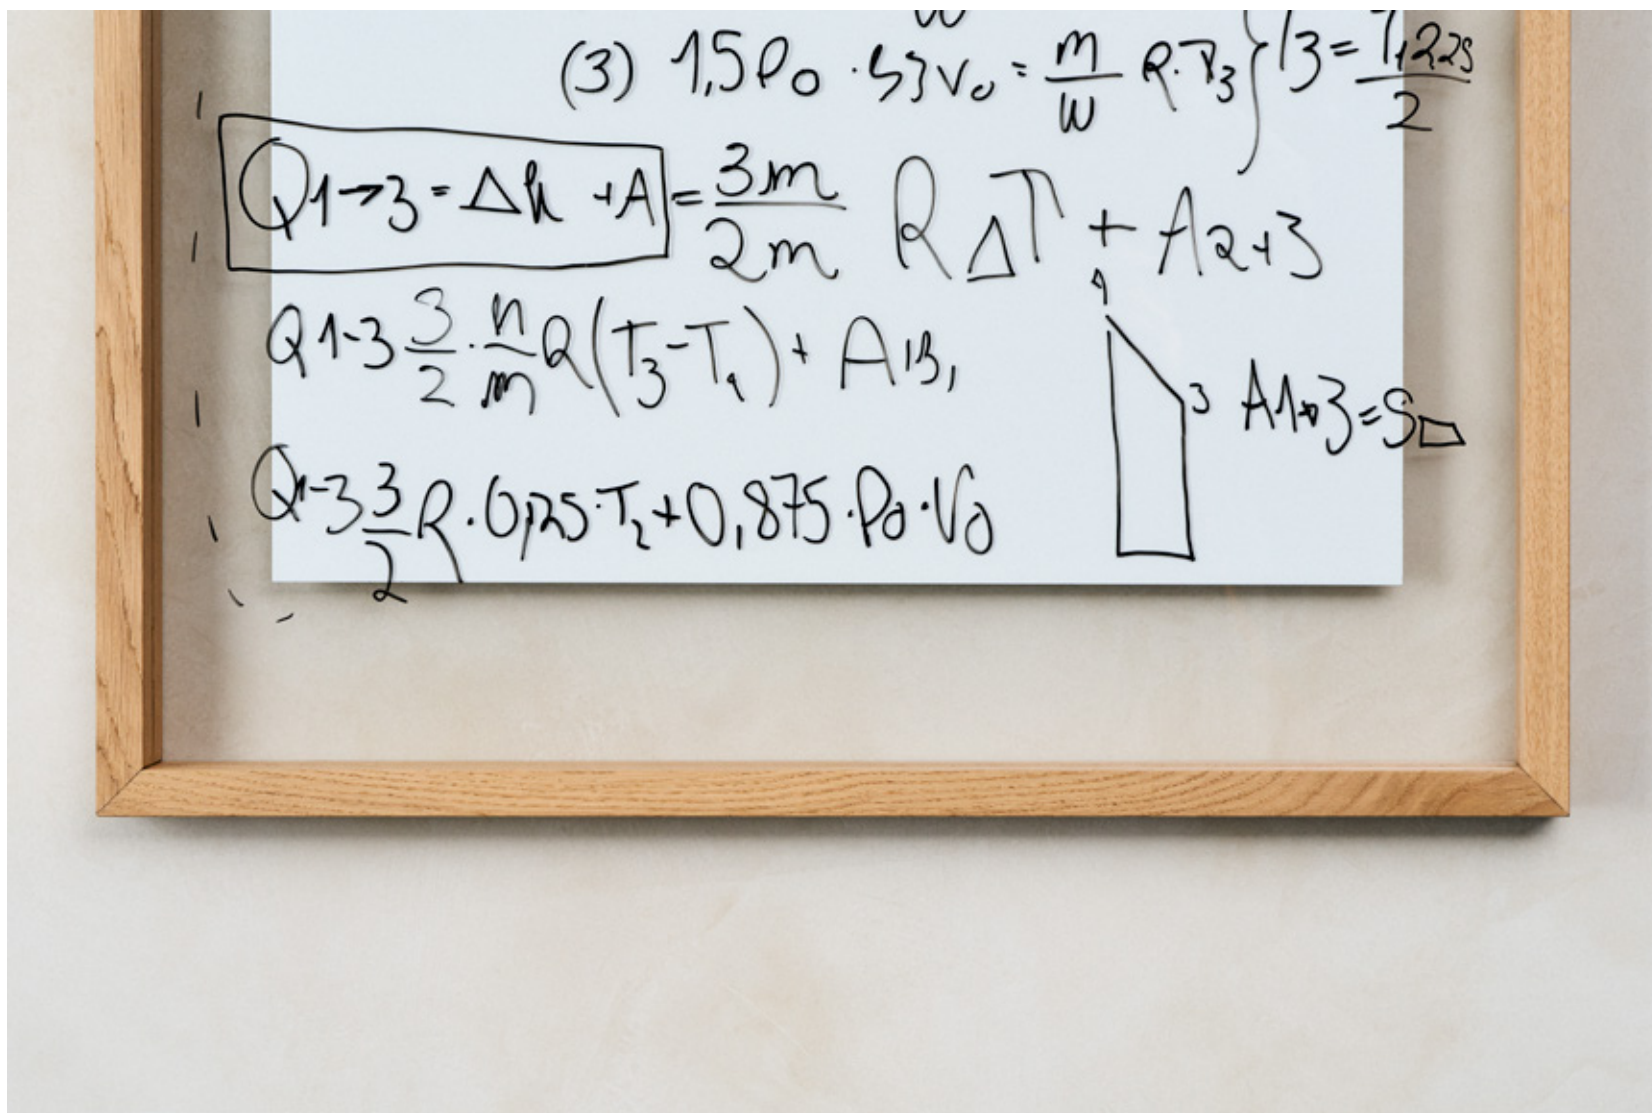 (3) 1,5P₀ · 53V₀ = m/w R·T₃ } T3 = 1,225/2
Q1→3 = Δu + A = 3m/2m RΔT + A2+3
Q1-3 3/2 · n/m R(T₃-T₁) + A13,
1
3 A1→3 = S▱
Q1-3 3/2 R · 0,125·T₂ + 0,875·P₀·V₀